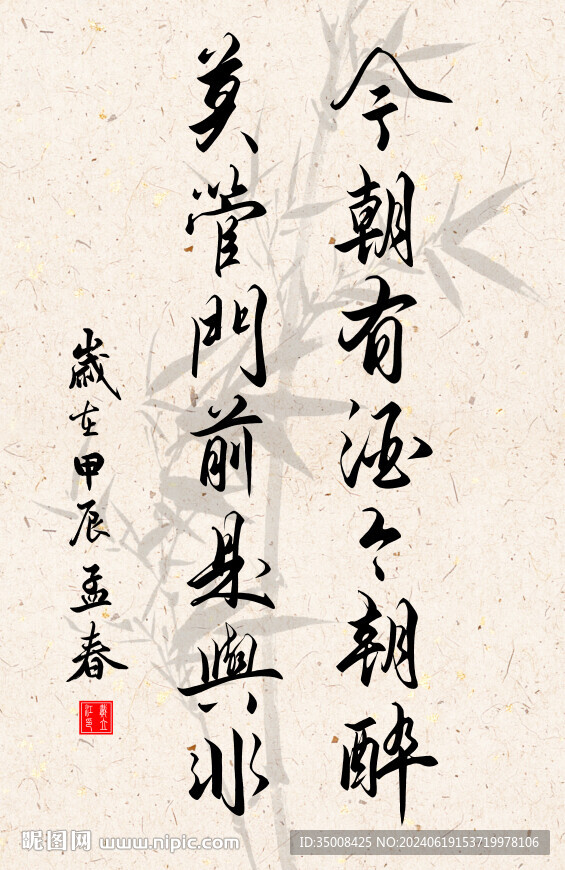 今朝有酒今朝醉
莫管門前是與非
歲在甲辰孟春
昵图网 www.nipic.com
ID:35008425 NO:20240619153719978106